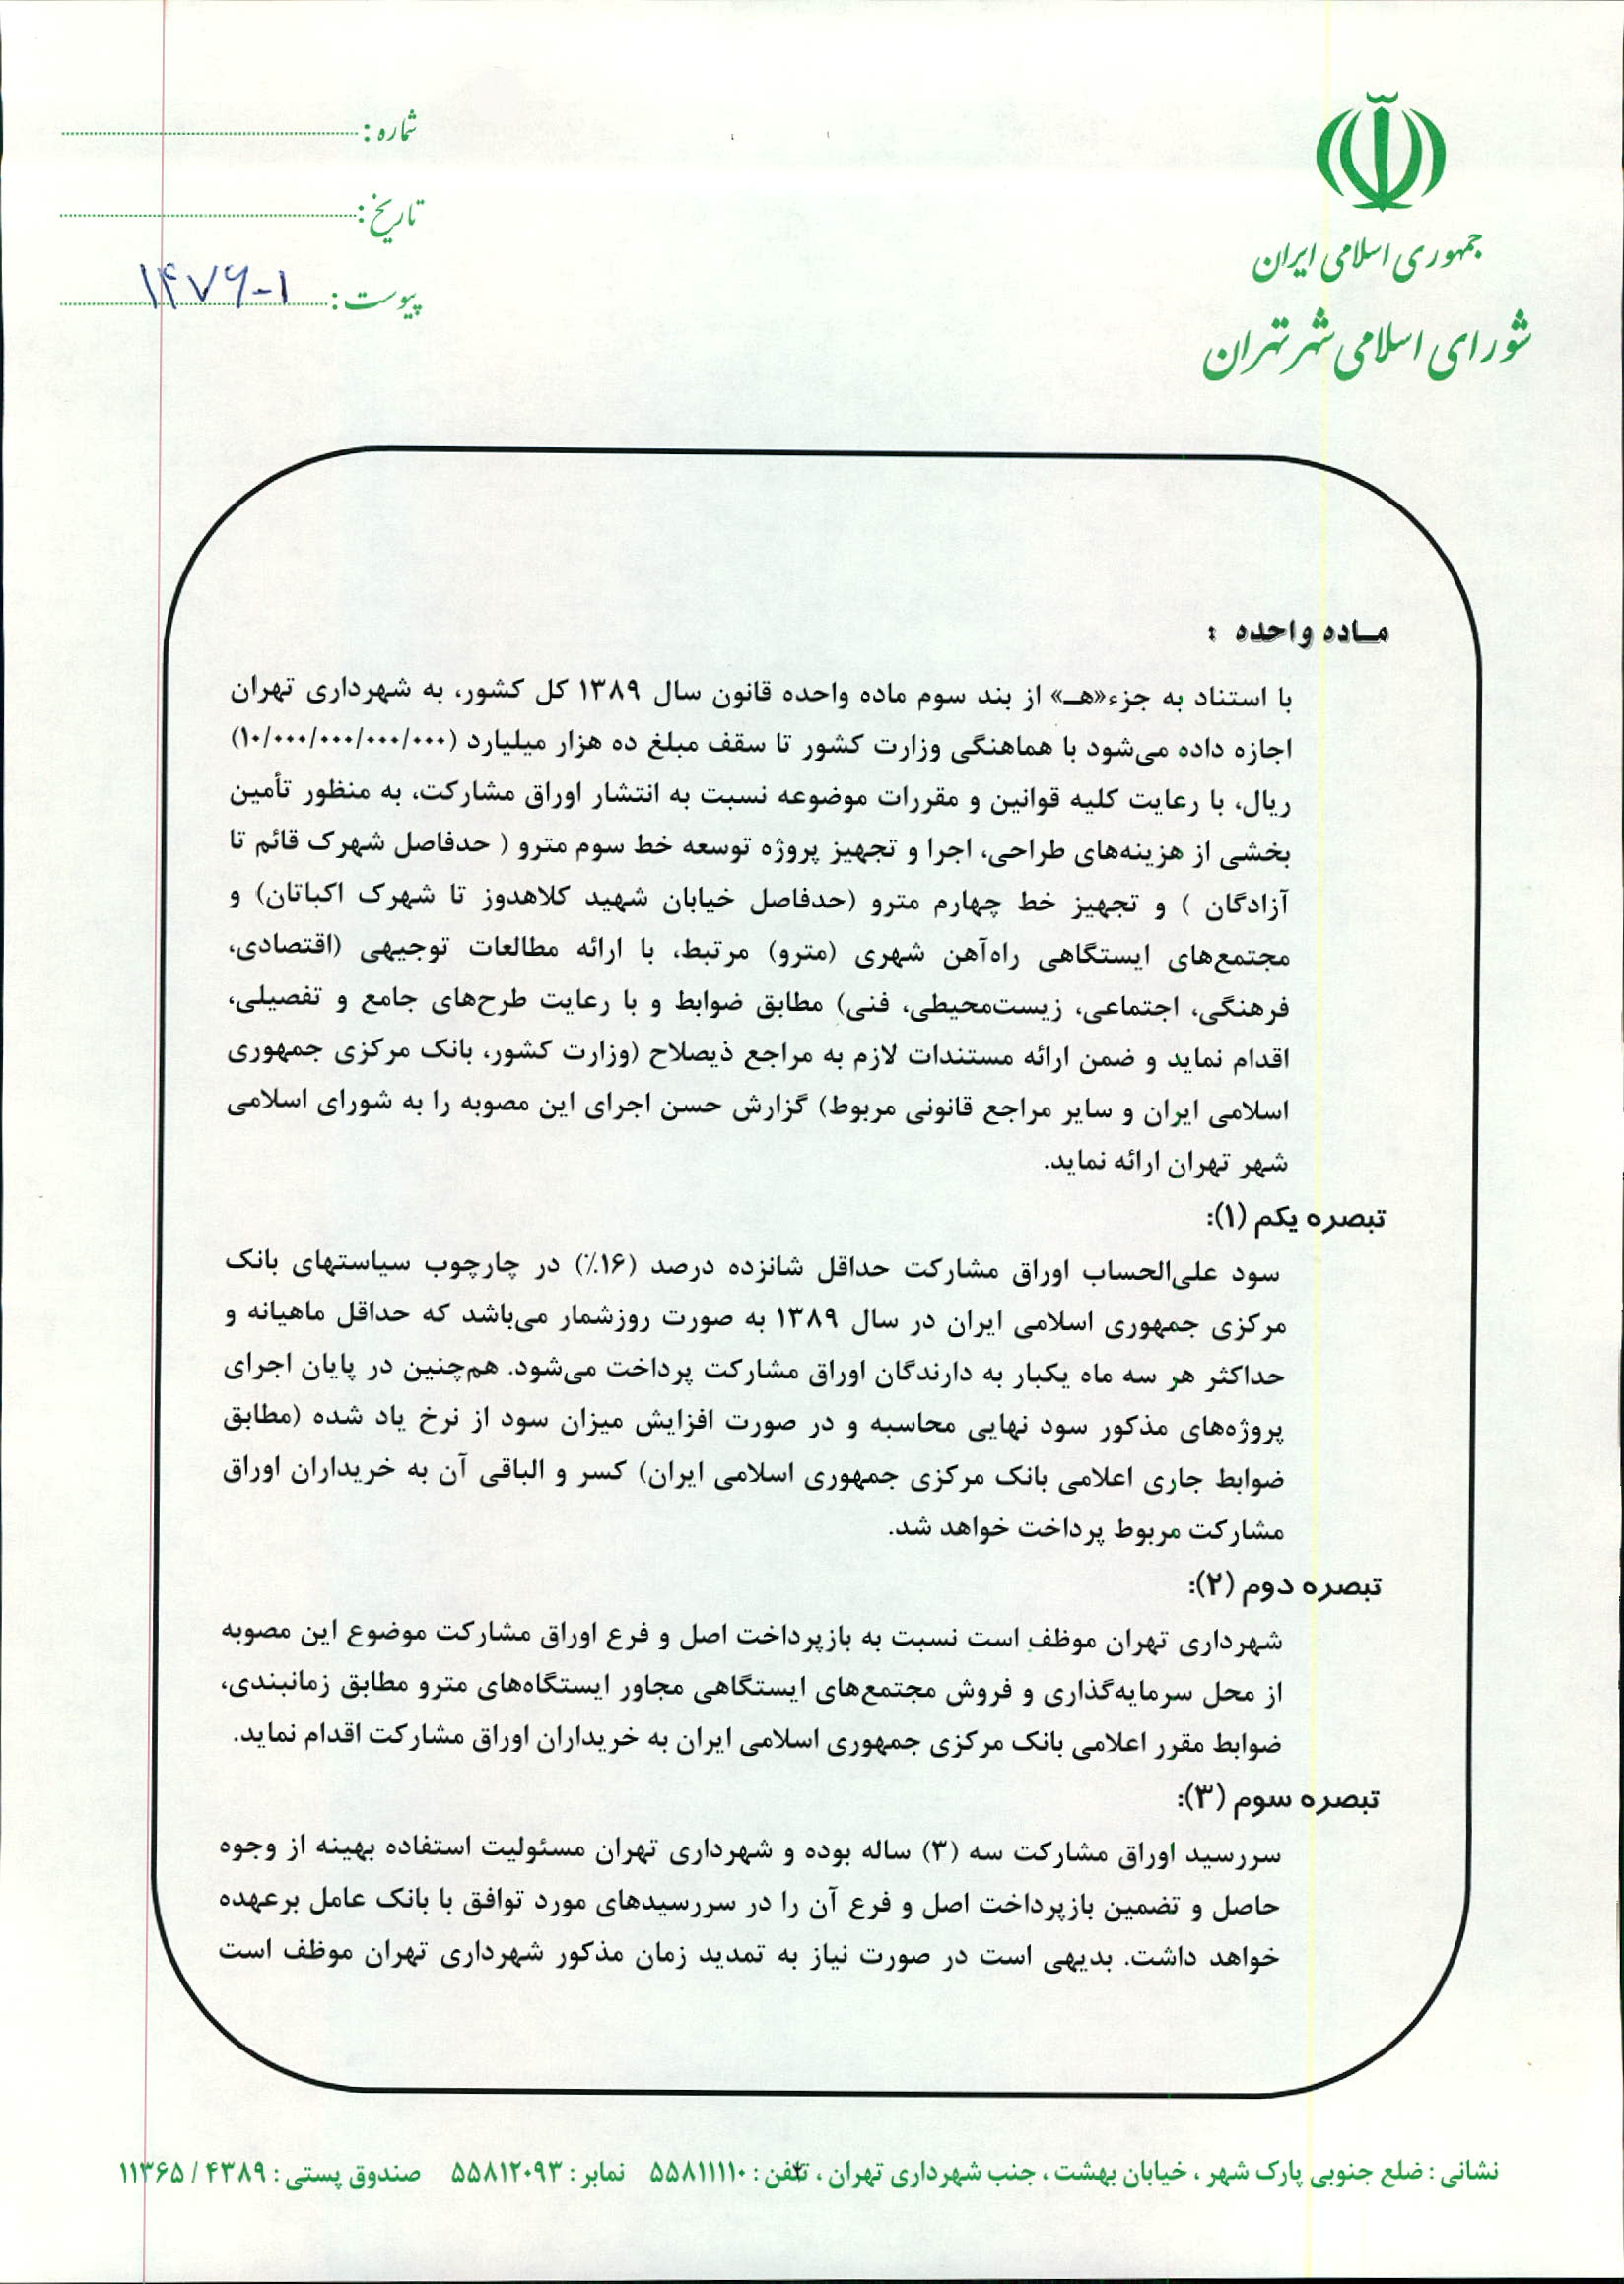 جمهوری اسلامی ایران
شورای اسلامی شهر تهران
شماره :
تاریخ :
پیوست : ۱۴۷۶-۱
مـاده واحده :
با استناد به جزء«هـ» از بند سوم ماده واحده قانون سال ۱۳۸۹ کل کشور، به شهرداری تهران
اجازه داده می‌شود با هماهنگی وزارت کشور تا سقف مبلغ ده هزار میلیارد (۱۰/۰۰۰/۰۰۰/۰۰۰/۰۰۰)
ریال، با رعایت کلیه قوانین و مقررات موضوعه نسبت به انتشار اوراق مشارکت، به منظور تأمین
بخشی از هزینه‌های طراحی، اجرا و تجهیز پروژه توسعه خط سوم مترو ( حدفاصل شهرک قائم تا
آزادگان ) و تجهیز خط چهارم مترو (حدفاصل خیابان شهید کلاهدوز تا شهرک اکباتان) و
مجتمع‌های ایستگاهی راه‌آهن شهری (مترو) مرتبط، با ارائه مطالعات توجیهی (اقتصادی،
فرهنگی، اجتماعی، زیست‌محیطی، فنی) مطابق ضوابط و با رعایت طرح‌های جامع و تفصیلی،
اقدام نماید و ضمن ارائه مستندات لازم به مراجع ذیصلاح (وزارت کشور، بانک مرکزی جمهوری
اسلامی ایران و سایر مراجع قانونی مربوط) گزارش حسن اجرای این مصوبه را به شورای اسلامی
شهر تهران ارائه نماید.
تبصره یکم (۱):
سود علی‌الحساب اوراق مشارکت حداقل شانزده درصد (۱۶٪) در چارچوب سیاستهای بانک
مرکزی جمهوری اسلامی ایران در سال ۱۳۸۹ به صورت روزشمار می‌باشد که حداقل ماهیانه و
حداکثر هر سه ماه یکبار به دارندگان اوراق مشارکت پرداخت می‌شود. هم‌چنین در پایان اجرای
پروژه‌های مذکور سود نهایی محاسبه و در صورت افزایش میزان سود از نرخ یاد شده (مطابق
ضوابط جاری اعلامی بانک مرکزی جمهوری اسلامی ایران) کسر و الباقی آن به خریداران اوراق
مشارکت مربوط پرداخت خواهد شد.
تبصره دوم (۲):
شهرداری تهران موظف است نسبت به بازپرداخت اصل و فرع اوراق مشارکت موضوع این مصوبه
از محل سرمایه‌گذاری و فروش مجتمع‌های ایستگاهی مجاور ایستگاه‌های مترو مطابق زمانبندی،
ضوابط مقرر اعلامی بانک مرکزی جمهوری اسلامی ایران به خریداران اوراق مشارکت اقدام نماید.
تبصره سوم (۳):
سررسید اوراق مشارکت سه (۳) ساله بوده و شهرداری تهران مسئولیت استفاده بهینه از وجوه
حاصل و تضمین بازپرداخت اصل و فرع آن را در سررسیدهای مورد توافق با بانک عامل برعهده
خواهد داشت. بدیهی است در صورت نیاز به تمدید زمان مذکور شهرداری تهران موظف است
نشانی : ضلع جنوبی پارک شهر ، خیابان بهشت ، جنب شهرداری تهران ، تلفن : ۵۵۸۱۱۱۱۰ نمابر : ۵۵۸۱۲۰۹۳ صندوق پستی : ۴۳۸۹ / ۱۱۳۶۵